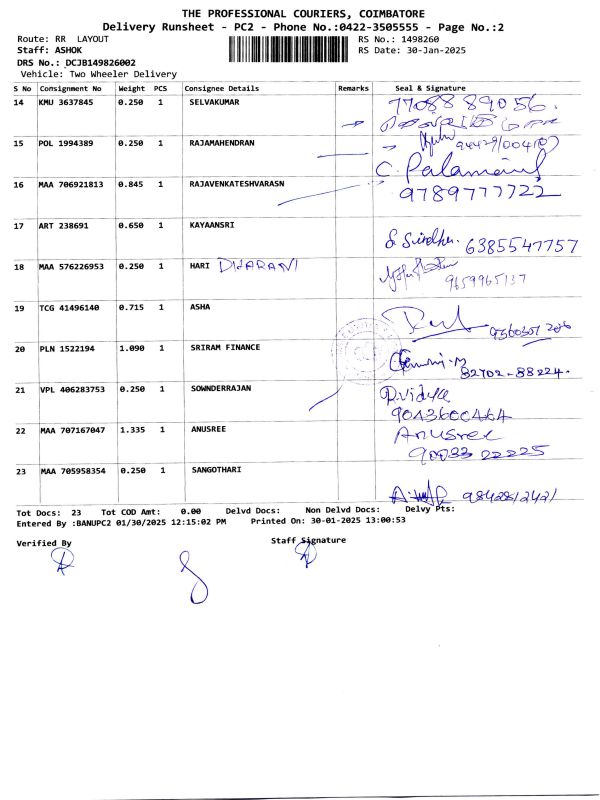 THE PROFESSIONAL COURIERS, COIMBATORE
Delivery Runsheet - PC2 - Phone No.:0422-3505555 - Page No.:2
Route: RR LAYOUT RS No.: 1498260
Staff: ASHOK RS Date: 30-Jan-2025
DRS No.: DCJB149826002
Vehicle: Two Wheeler Delivery
S No Consignment No Weight PCS Consignee Details Remarks Seal & Signature
14 KMU 3637845 0.250 1 SELVAKUMAR 77088 89056.
15 POL 1994389 0.250 1 RAJAMAHENDRAN
C. Palamani
16 MAA 706921813 0.845 1 RAJAVENKATESHVARASN 9789777722
17 ART 238691 0.650 1 KAYAANSRI
6385547757
18 MAA 576226953 0.250 1 HARI DHARANI
9659965137
19 TCG 41496140 0.715 1 ASHA
20 PLN 1522194 1.090 1 SRIRAM FINANCE
82702-88224.
21 VPL 406283753 0.250 1 SOWNDERRAJAN D.Vidya
9043600464
22 MAA 707167047 1.335 1 ANUSREE Anusree
90033 22225
23 MAA 705958354 0.250 1 SANGOTHARI
Tot Docs: 23 Tot COD Amt: 0.00 Delvd Docs: Non Delvd Docs: Delvy Pts:
Entered By :BANUPC2 01/30/2025 12:15:02 PM Printed On: 30-01-2025 13:00:53
Verified By Staff Signature